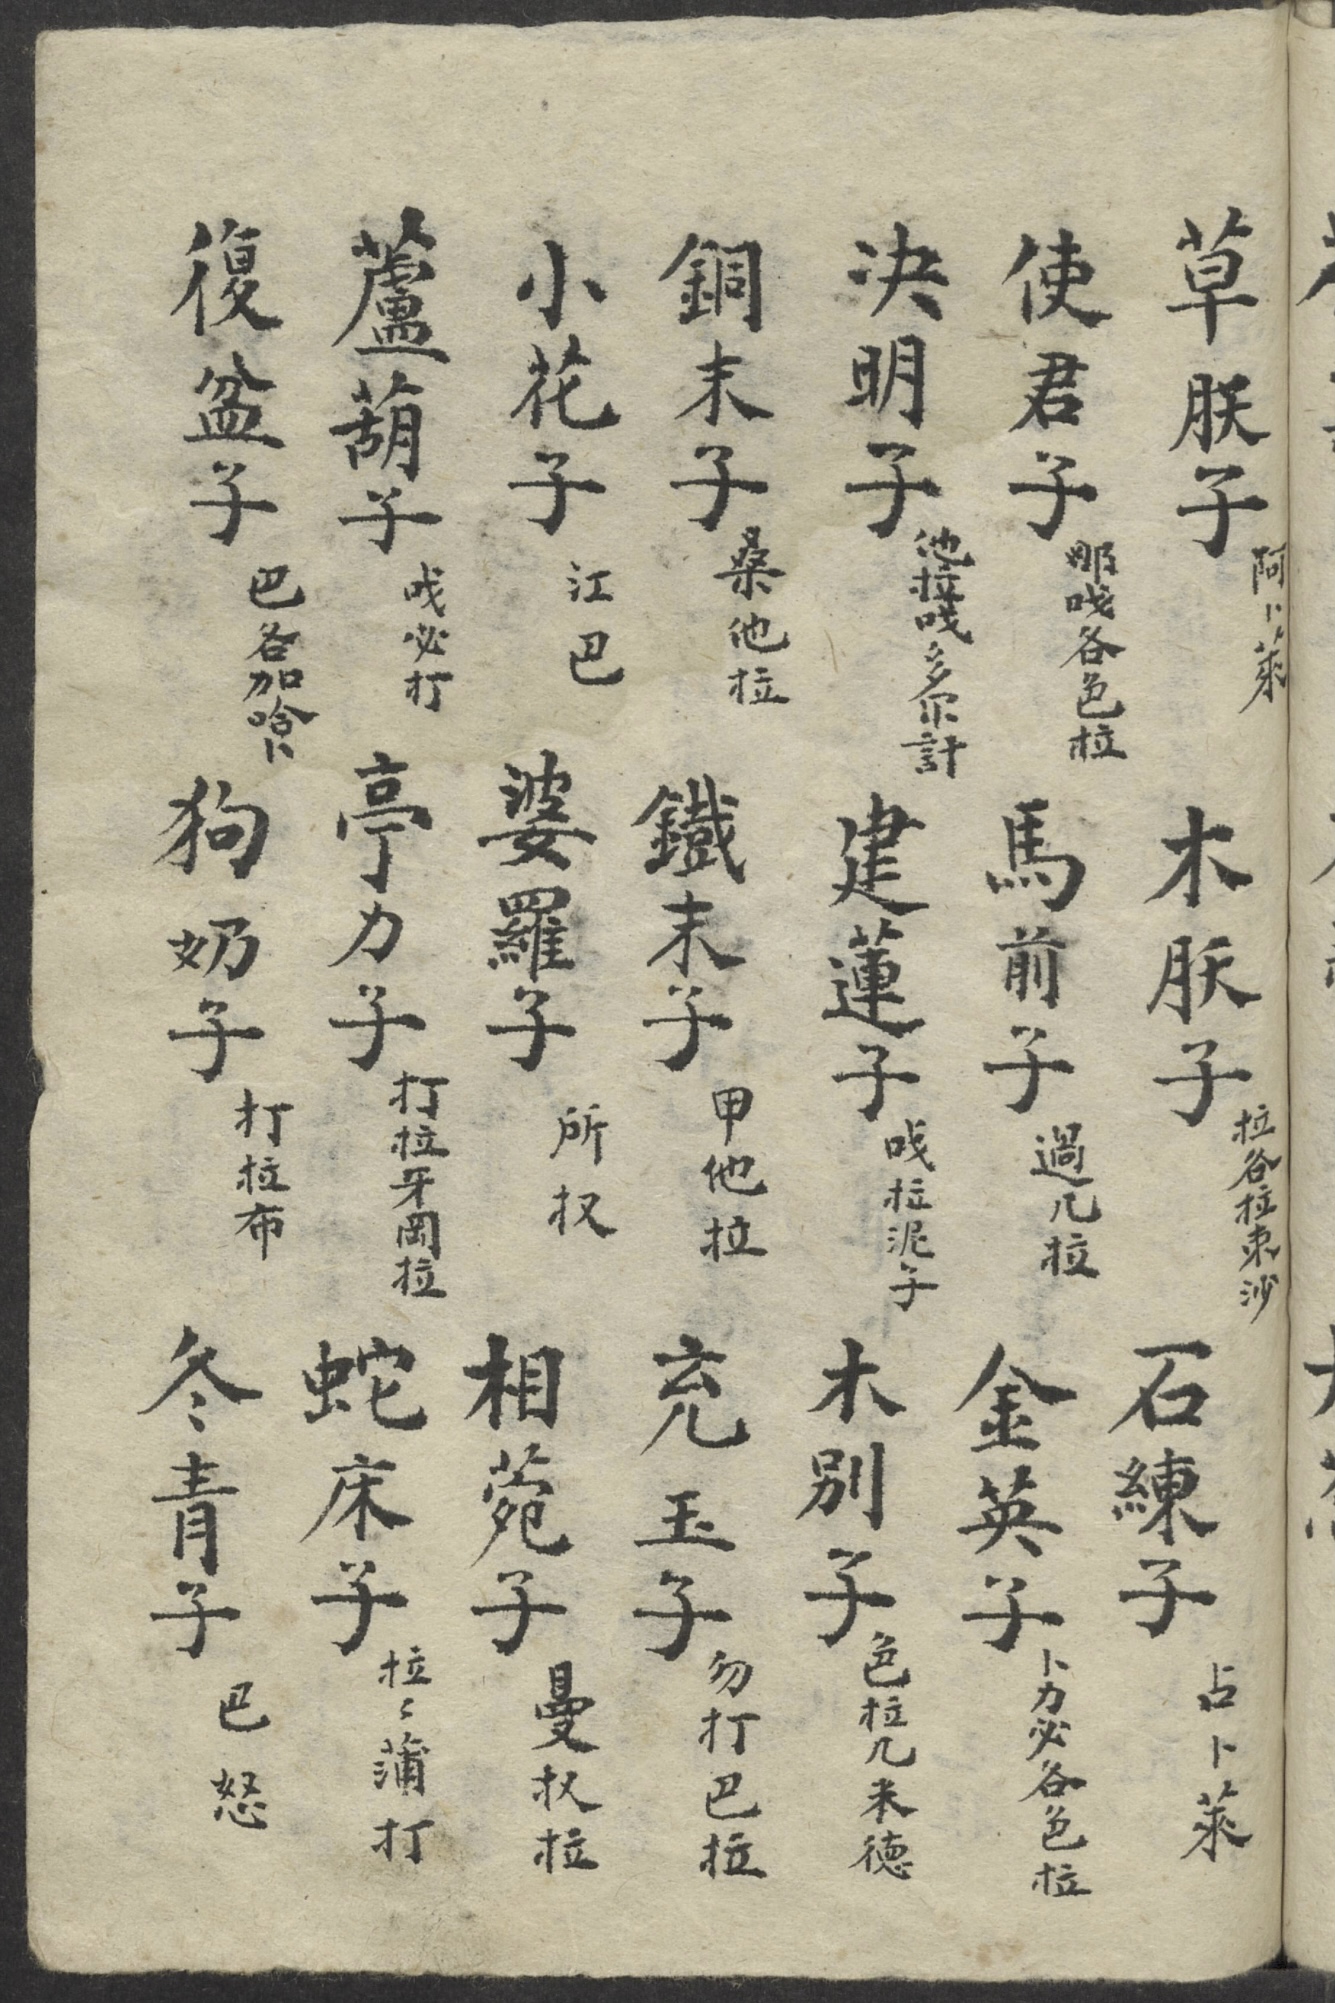 草朕子 阿卜萊 木朕子 拉谷拉束沙 石練子 占卜萊
使君子 那哦各色拉 馬前子 過几拉 金英子 卜力必各色拉
決明子 他拉哦多尔計 建蓮子 哦拉泥子 木別子 色拉几米德
銅末子 桑他拉 鐵末子 甲他拉 充玉子 勿打巴拉
小花子 江巴 婆羅子 所权 相菀子 曼权拉
蘆葫子 哦必打 亭力子 打拉牙岡拉 蛇床子 拉〻蒲打
復盆子 巴各加唅卜 狗奶子 打拉布 冬青子 巴怒